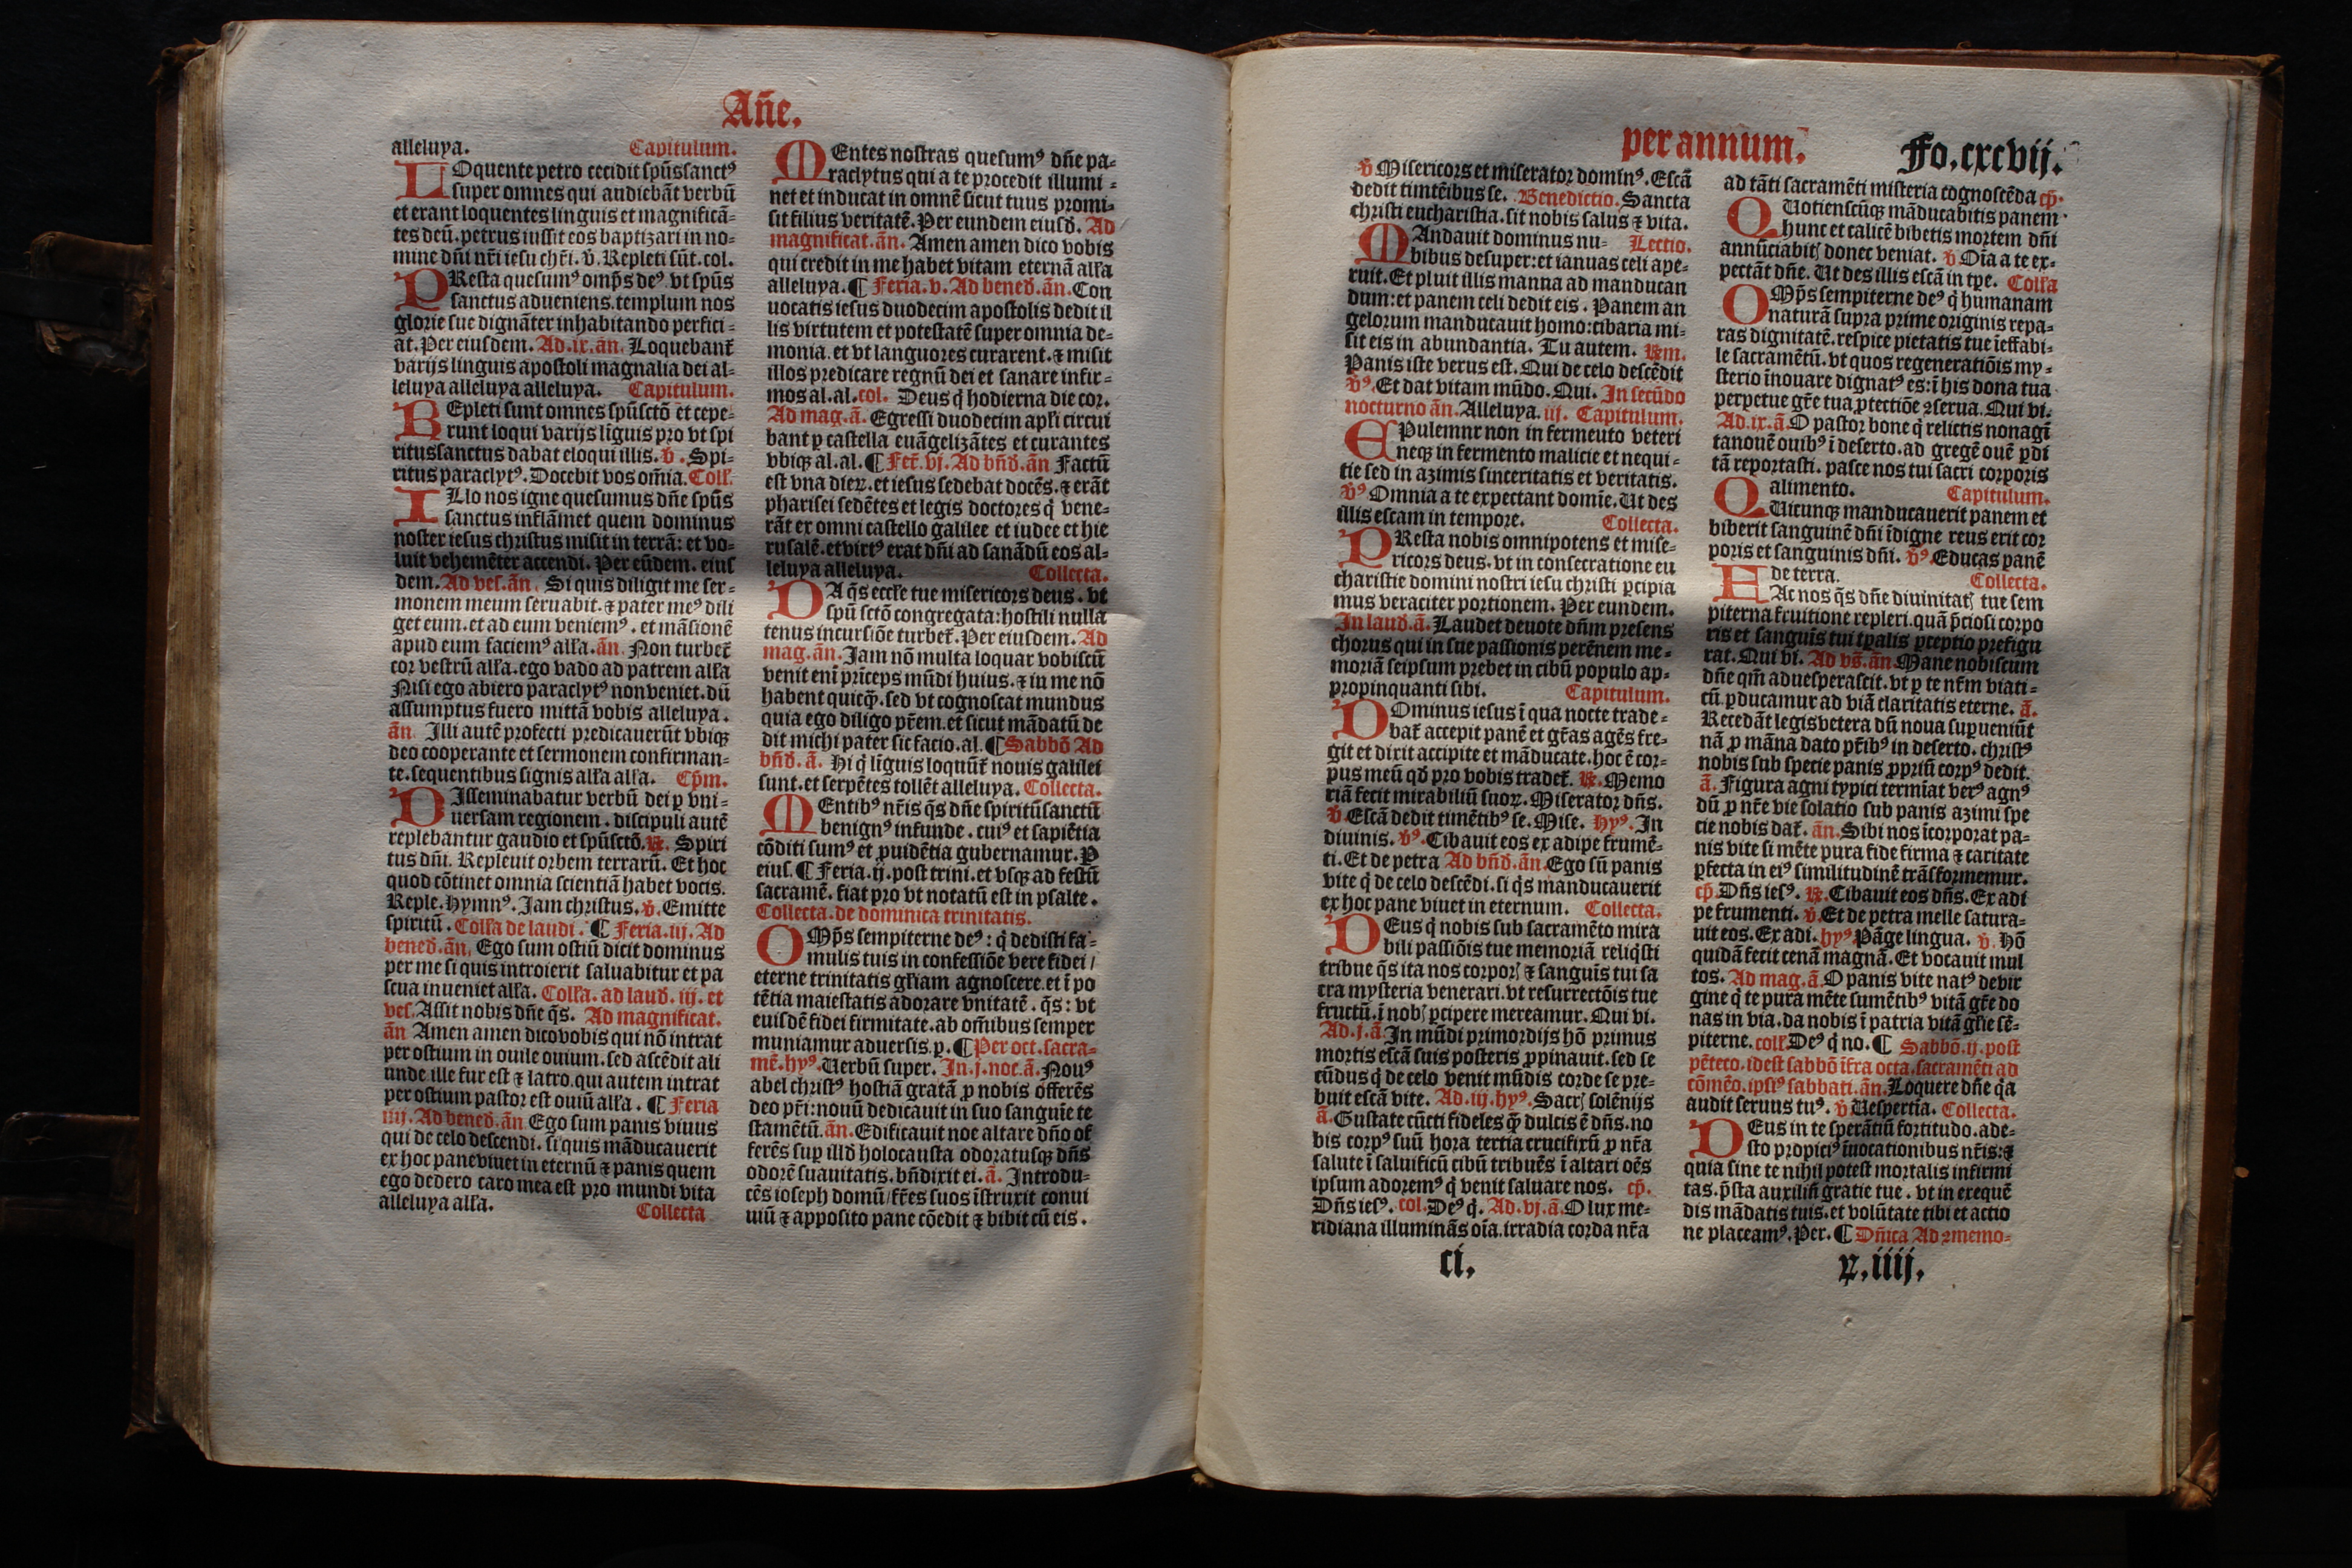 Añe.
alleluya. Capitulum.
LOquente petro cecidit spũssanctꝰ
super omnes qui audiebãt verbũ
et erant loquentes linguis et magnificã-
tes deũ. petrus iussit eos baptizari in no-
mine dñi nr̃i iesu chr̃i. ṽ. Repleti sũt. col.
PResta quesumꝰ omp̃s deꝰ. vt spũs
sanctus adueniens. templum nos
glorie sue dignãter inhabitando perfici-
at. Per eiusdem. Ad .ix. ãn. Loquebant᷑
varijs linguis apostoli magnalia dei al-
leluya alleluya alleluya. Capitulum.
REpleti sunt omnes spũsctõ et cepe-
runt loqui varijs lĩguis pro vt spi
ritussanctus dabat eloqui illis. ṽ. Spi-
ritus paraclytꝰ. Docebit vos om̃ia. Coll'.
ILlo nos igne quesumus dñe spũs
sanctus inflãmet quem dominus
noster iesus christus misit in terrã: et vo-
luit vehemẽter accendi. Per eũdem. eius
dem. Ad ves. ãn. Si quis diligit me ser-
monem meum seruabit. ⁊ pater meꝰ dili
get eum. et ad eum veniemꝰ. et mãsionẽ
apud eum faciemꝰ all'a. ãn. Non turbet᷑
cor vestrũ all'a. ego vado ad patrem all'a
Nisi ego abiero paraclytꝰ non veniet. dũ
assumptus fuero mittã vobis alleluya.
ãn. Illi autẽ profecti predicauerũt vbiqꝫ
deo cooperante et sermonem confirman-
te. sequentibus signis all'a all'a. Cp̃m.
DIsseminabatur verbũ dei ꝑ vni-
uersam regionem. discipuli autẽ
replebantur gaudio et spũsctõ. ℟. Spiri
tus dñi. Repleuit orbem terrarũ. Et hoc
quod cõtinet omnia scientiã habet vocis.
Reple. hymnꝰ. Jam christus. ṽ. Emitte
spiritũ. Coll'a de laudi. ¶ Feria .iij. Ad
bened. ãn. Ego sum ostiũ dicit dominus
per me si quis introierit saluabitur et pa
scua inueniet all'a. Coll'a. ad laud. iij. et
ves. Assit nobis dñe q̃s. Ad magnificat.
ãn Amen amen dico vobis qui nõ intrat
per ostium in ouile ouium. sed ascẽdit ali
unde. ille fur est ⁊ latro. qui autem intrat
per ostium pastor est ouiũ all'a. ¶ Feria
iiij. Ad bened. ãn Ego sum panis viuus
qui de celo descendi. si quis mãducauerit
ex hoc pane viuet in eternũ ⁊ panis quem
ego dedero caro mea est pro mundi vita
alleluya all'a. Collecta
MEntes nostras quesumꝰ dñe pa-
raclytus qui a te procedit illumi-
net et inducat in omnẽ sicut tuus promi-
sit filius veritatẽ. Per eundem eiusd. Ad
magnificat. ãn. Amen amen dico vobis
qui credit in me habet vitam eternã all'a
alleluya. ¶ Feria. v. Ad bened. ãn. Con
uocatis iesus duodecim apostolis dedit il
lis virtutem et potestatẽ super omnia de-
monia. et vt languores curarent. ⁊ misit
illos predicare regnũ dei et sanare infir-
mos al. al. col. Deus q̃ hodierna die cor.
Ad mag. ã. Egressi duodecim apl'i circui
bant ꝑ castella euãgelizãtes et curantes
vbiqꝫ al. al. ¶ Fer᷑. vj. Ad bñd. ãn Factũ
est vna dieꝝ. et iesus sedebat docẽs. ⁊ erãt
pharisei sedẽtes et legis doctores q̃ vene-
rãt ex omni castello galilee et iudee et hie
rusalẽ. et virtꝰ erat dñi ad sanãdũ eos al-
leluya alleluya. Collecta.
DA q̃s eccl'e tue misericors deus. vt
spũ sctõ congregata: hostili nulla
tenus incursiõe turbet᷑. Per eiusdem. Ad
mag. ãn. Jam nõ multa loquar vobiscũ
venit eni᷑ pri᷑ceps mũdi huius. ⁊ in me nõ
habent quicq̃. sed vt cognoscat mundus
quia ego diligo pr̃em. et sicut mãdatũ de
dit michi pater sic facio. al. ¶ Sabbõ Ad
bñd. ã. Hi q̃ lĩguis loquũt᷑ nouis galilei
sunt. et serpẽtes tollẽt alleluya. Collecta.
MEntibꝰ nr̃is q̃s dñe spiritũsanctũ
benignꝰ infunde. cuiꝰ et sapiẽtia
cõditi sumꝰ et ꝓuidẽtia gubernamur. Ꝑ
eius. ¶ Feria. ij. post trini. et vsqꝫ ad festũ
sacramẽ. fiat pro vt notatũ est in psalte.
Collecta. de dominica trinitatis.
OMp̃s sempiterne deꝰ: q̃ dedisti fa-
mulis tuis in confessiõe vere fidei/
eterne trinitatis gl'iam agnoscere. et ĩ po
tẽtia maiestatis adorare vnitatẽ. q̃s: vt
euisdẽ fidei firmitate. ab om̃ibus semper
muniamur aduersis. p. ¶ Per oct. sacra-
mẽ. hyꝰ. Uerbũ super. In .j. noc. ã. Nouꝰ
abel christꝰ hostiã gratã ꝓ nobis offerẽs
deo pr̃i: nouũ dedicauit in suo sanguie te
stamẽtũ. ãn. Edificauit noe altare dño of
ferẽs suꝑ illd holocausta odoratusqꝫ dñs
odorẽ suauitatis. bñdixit ei. ã. Introdu-
cẽs ioseph domũ/ fr̃es suos ĩstruxit conui
uiũ ⁊ apposito pane cõedit ⁊ bibit cũ eis.
per annum. Fo. cxcvij.
ṽ Misericors et miserator dominꝰ. Escã
dedit timẽtibus se. Benedictio. Sancta
christi eucharistia. sit nobis salus ⁊ vita.
MAndauit dominus nu- Lectio.
bibus desuper: et ianuas celi ape-
ruit. Et pluit illis manna ad manducan
dum: et panem celi dedit eis. Panem an
gelorum manducauit homo: cibaria mi-
sit eis in abundantia. Tu autem. ℟m.
Panis iste verus est. Qui de celo descẽdit
ṽꝰ. Et dat vitam mũdo. Qui. In secũdo
nocturno ãn. Alleluya. iij. Capitulum.
EPulemnr non in fermeuto veteri
neqꝫ in fermento malicie et nequi-
tie sed in azimis sinceritatis et veritatis.
ṽꝰ Omnia a te expectant domĩe. Ut des
illis escam in tempore. Collecta.
PResta nobis omnipotens et mise-
ricors deus. vt in consecratione eu
charistie domini nostri iesu christi ꝑcipia
mus veraciter portionem. Per eundem.
In laud. ã. Laudet deuote dñm presens
chorus qui in sue passionis perẽnem me-
moriã seipsum prebet in cibũ populo ap-
propinquanti sibi. Capitulum.
DOminus iesus ĩ qua nocte trade-
bat᷑ accepit panẽ et gr̃as agẽs fre-
git et dixit accipite et mãducate. hoc ẽ cor-
pus meũ qd̃ pro vobis tradet᷑. ℟. Memo
riã fecit mirabiliũ suoꝝ. Miserator dñs.
ṽ. Escã dedit timẽtibꝰ se. Mise. hyꝰ. In
diuinis. ṽꝰ. Cibauit eos ex adipe frumẽ-
ti. Et de petra Ad bñd. ãn. Ego sũ panis
vite q̃ de celo descẽdi. si q̃s manducauerit
ex hoc pane viuet in eternum. Collecta.
DEus q̃ nobis sub sacramẽto mira
bili passiõis tue memoriã reliq̃sti
tribue q̃s ita nos corporꝭ ⁊ sanguis tui sa
cra mysteria venerari. vt resurrectõis tue
fructũ. ĩ nobꝭ ꝑcipere mereamur. Qui vi.
Ad .j. ã. In mũdi primordijs hõ primus
mortis escã suis posteris ꝓpinauit. sed se
cũdus q̃ de celo venit mũdis corde se pre-
buit escã vite. Ad .iij. hyꝰ. Sacrꝭ solẽnijs
ã. Gustate cũcti fideles q̃ dulcis ẽ dñs. no
bis corpꝰ suũ hora tertia crucifixũ ꝓ nr̃a
salute ĩ saluificũ cibũ tribuẽs ĩ altari oẽs
ipsum adoremꝰ q̃ venit saluare nos. cp̃.
Dñs iesꝰ. col. Deꝰ q̃. Ad .vj. ã. O lux me-
ridiana illuminãs oĩa. irradia corda nr̃a
ci.
ad tãti sacramẽti misteria cognoscẽda cp̃.
QUotienscũqꝫ mãducabitis panem
hunc et calicẽ bibetis mortem dñi
annũciabitꝭ donec veniat. ṽ Oĩa a te ex-
pectãt dñe. Ut des illis escã in tp̃e. Coll'a
OMp̃s sempiterne deꝰ q̃ humanam
naturã supra prime originis repa-
ras dignitatẽ. respice pietatis tue ĩeffabi-
le sacramẽtũ. vt quos regeneratiõis my-
sterio ĩnouare dignatꝰ es: ĩ his dona tua
perpetue gr̃e tua ꝓtectiõe ꝯserua. Qui vi.
Ad .ix. ã. O pastor bone q̃ relictis nonagĩ
tanouẽ ouibꝰ ĩ deserto. ad gregẽ ouẽ ꝑdi
tã reportasti. pasce nos tui sacri corporis
alimento. Capitulum.
QUicunqꝫ manducauerit panem et
biberit sanguinẽ dñi ĩdigne reus erit cor
poris et sanguinis dñi. ṽꝰ. Educas panẽ
de terra. Collecta.
FAc nos q̃s dñe diuinitatꝭ tue sem
piterna fruitione repleri. quã p̃ciosi corpo
ris et sanguĩs tui tp̃alis ꝑceptio prefigu
rat. Qui vi. Ad vs̃. ãn Mane nobiscum
dñe qm̃ aduesperascit. vt ꝑ te nr̃m viati-
cũ ꝑducamur ad viã claritatis eterne. ã.
Recedãt legis vetera dũ noua supueniũt
nã ꝓ mãna dato pr̃ibꝰ in deserto. christꝰ
nobis sub specie panis ꝓpriũ corpꝰ dedit.
ã. Figura agni typici termĩat verꝰ agnꝰ
dũ ꝓ nr̃e vie solatio sub panis azimi spe
cie nobis dat᷑. ãn. Sibi nos ĩcorporat pa-
nis vite si mẽte pura fide firma ⁊ caritate
ꝑfecta in eiꝰ similitudinẽ trãsformemur.
cp̃. Dñs iesꝰ. ℟. Cibauit eos dñs. Ex adi
pe frumenti. ṽ. Et de petra melle satura-
uit eos. Ex adi. hyꝰ Pãge lingua. ṽ. Hõ
quidã fecit cenã magnã. Et vocauit mul
tos. Ad mag. ã. O panis vite natꝰ de vir
gine q̃ te pura mẽte sumẽtibꝰ vitã gr̃e do
nas in via. da nobis ĩ patria vitã gl'ie sẽ-
piterne. coll' Deꝰ q̃ no. ¶ Sabbõ. ij. post
pẽteco. idest sabbõ ĩfra octa. sacramẽti ad
cõmẽo. ipsiꝰ sabbati. ãn. Loquere dñe q̃a
audit seruus tuꝰ. ṽ Uespertĩa. Collecta.
DEus in te sperãtiũ fortitudo. ade-
sto propiciꝰ ĩuocationibus nr̃is: ⁊
quia sine te nihil potest mortalis infirmi
tas. p̃sta auxiliũ gratie tue. vt in exequẽ
dis mãdatis tuis. et volũtate tibi et actio
ne placeamꝰ. Per. ¶ Dñica Ad ꝯmemo-
ꝝ. iiij.